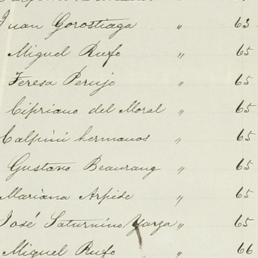 Juan Gorostiaga " 63
Miguel Rufo " 65
Teresa Perujo " 65
Cipriano del Moral " 65
Calpini hermanos " 65
Gustavo Beaurang " 65
Mariana Arpide " 65
José Saturnino Yarza " 65
Miguel Rufo " 66